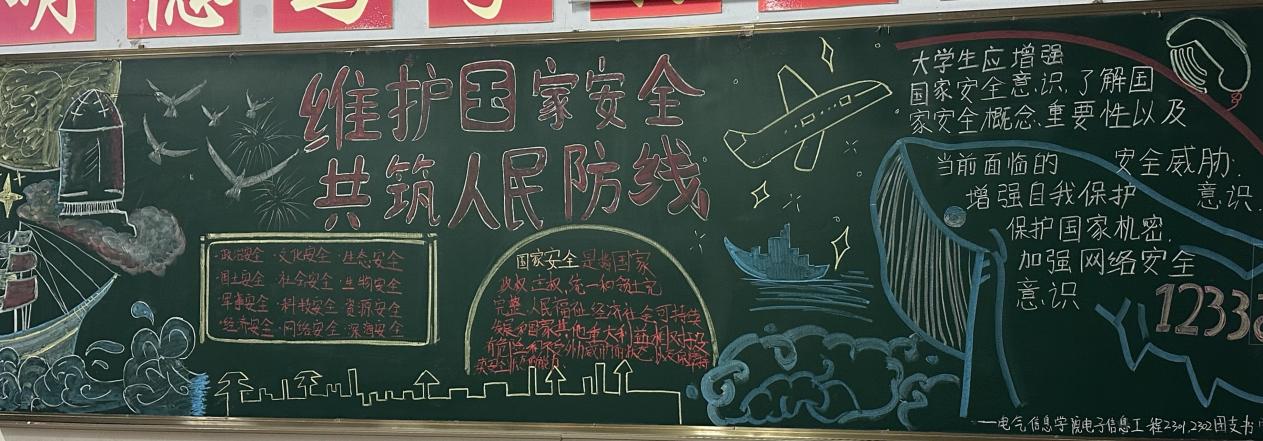 维护国家安全
共筑人民防线
·政治安全 ·文化安全 ·生态安全
·国土安全 ·社会安全 ·生物安全
·军事安全 ·科技安全 资源安全
·经济安全 ·网络安全 ·深海安全
国家安全是指国家
政权、主权、统一和领土完
完整、人民福祉、经济社会可持续
发展和国家其他重大利益相对
大学生应增强
国家安全意识,了解国
家安全概念、重要性以及
当前面临的 安全威胁:
增强自我保护 意识
保护国家机密,
加强网络安全
意识
1233
——电气信息学院电子信息工程2301、2302团支书